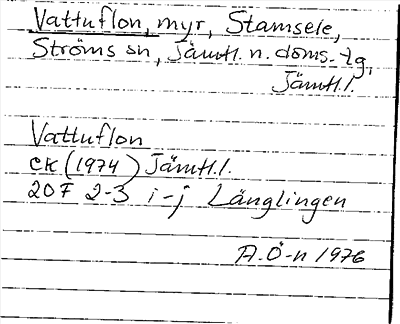 Vattuflon, myr, Stamsele,
Ströms sn, Jämtl. n. doms. tg,
Jämtl. l.
Vattuflon
EK (1974) Jämtl. l.
20F 2-3 i-j Länglingen
A. Ö-n 1976